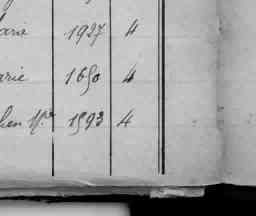 arie 1927 4
arie 1650 4
hen Vve 1593 4